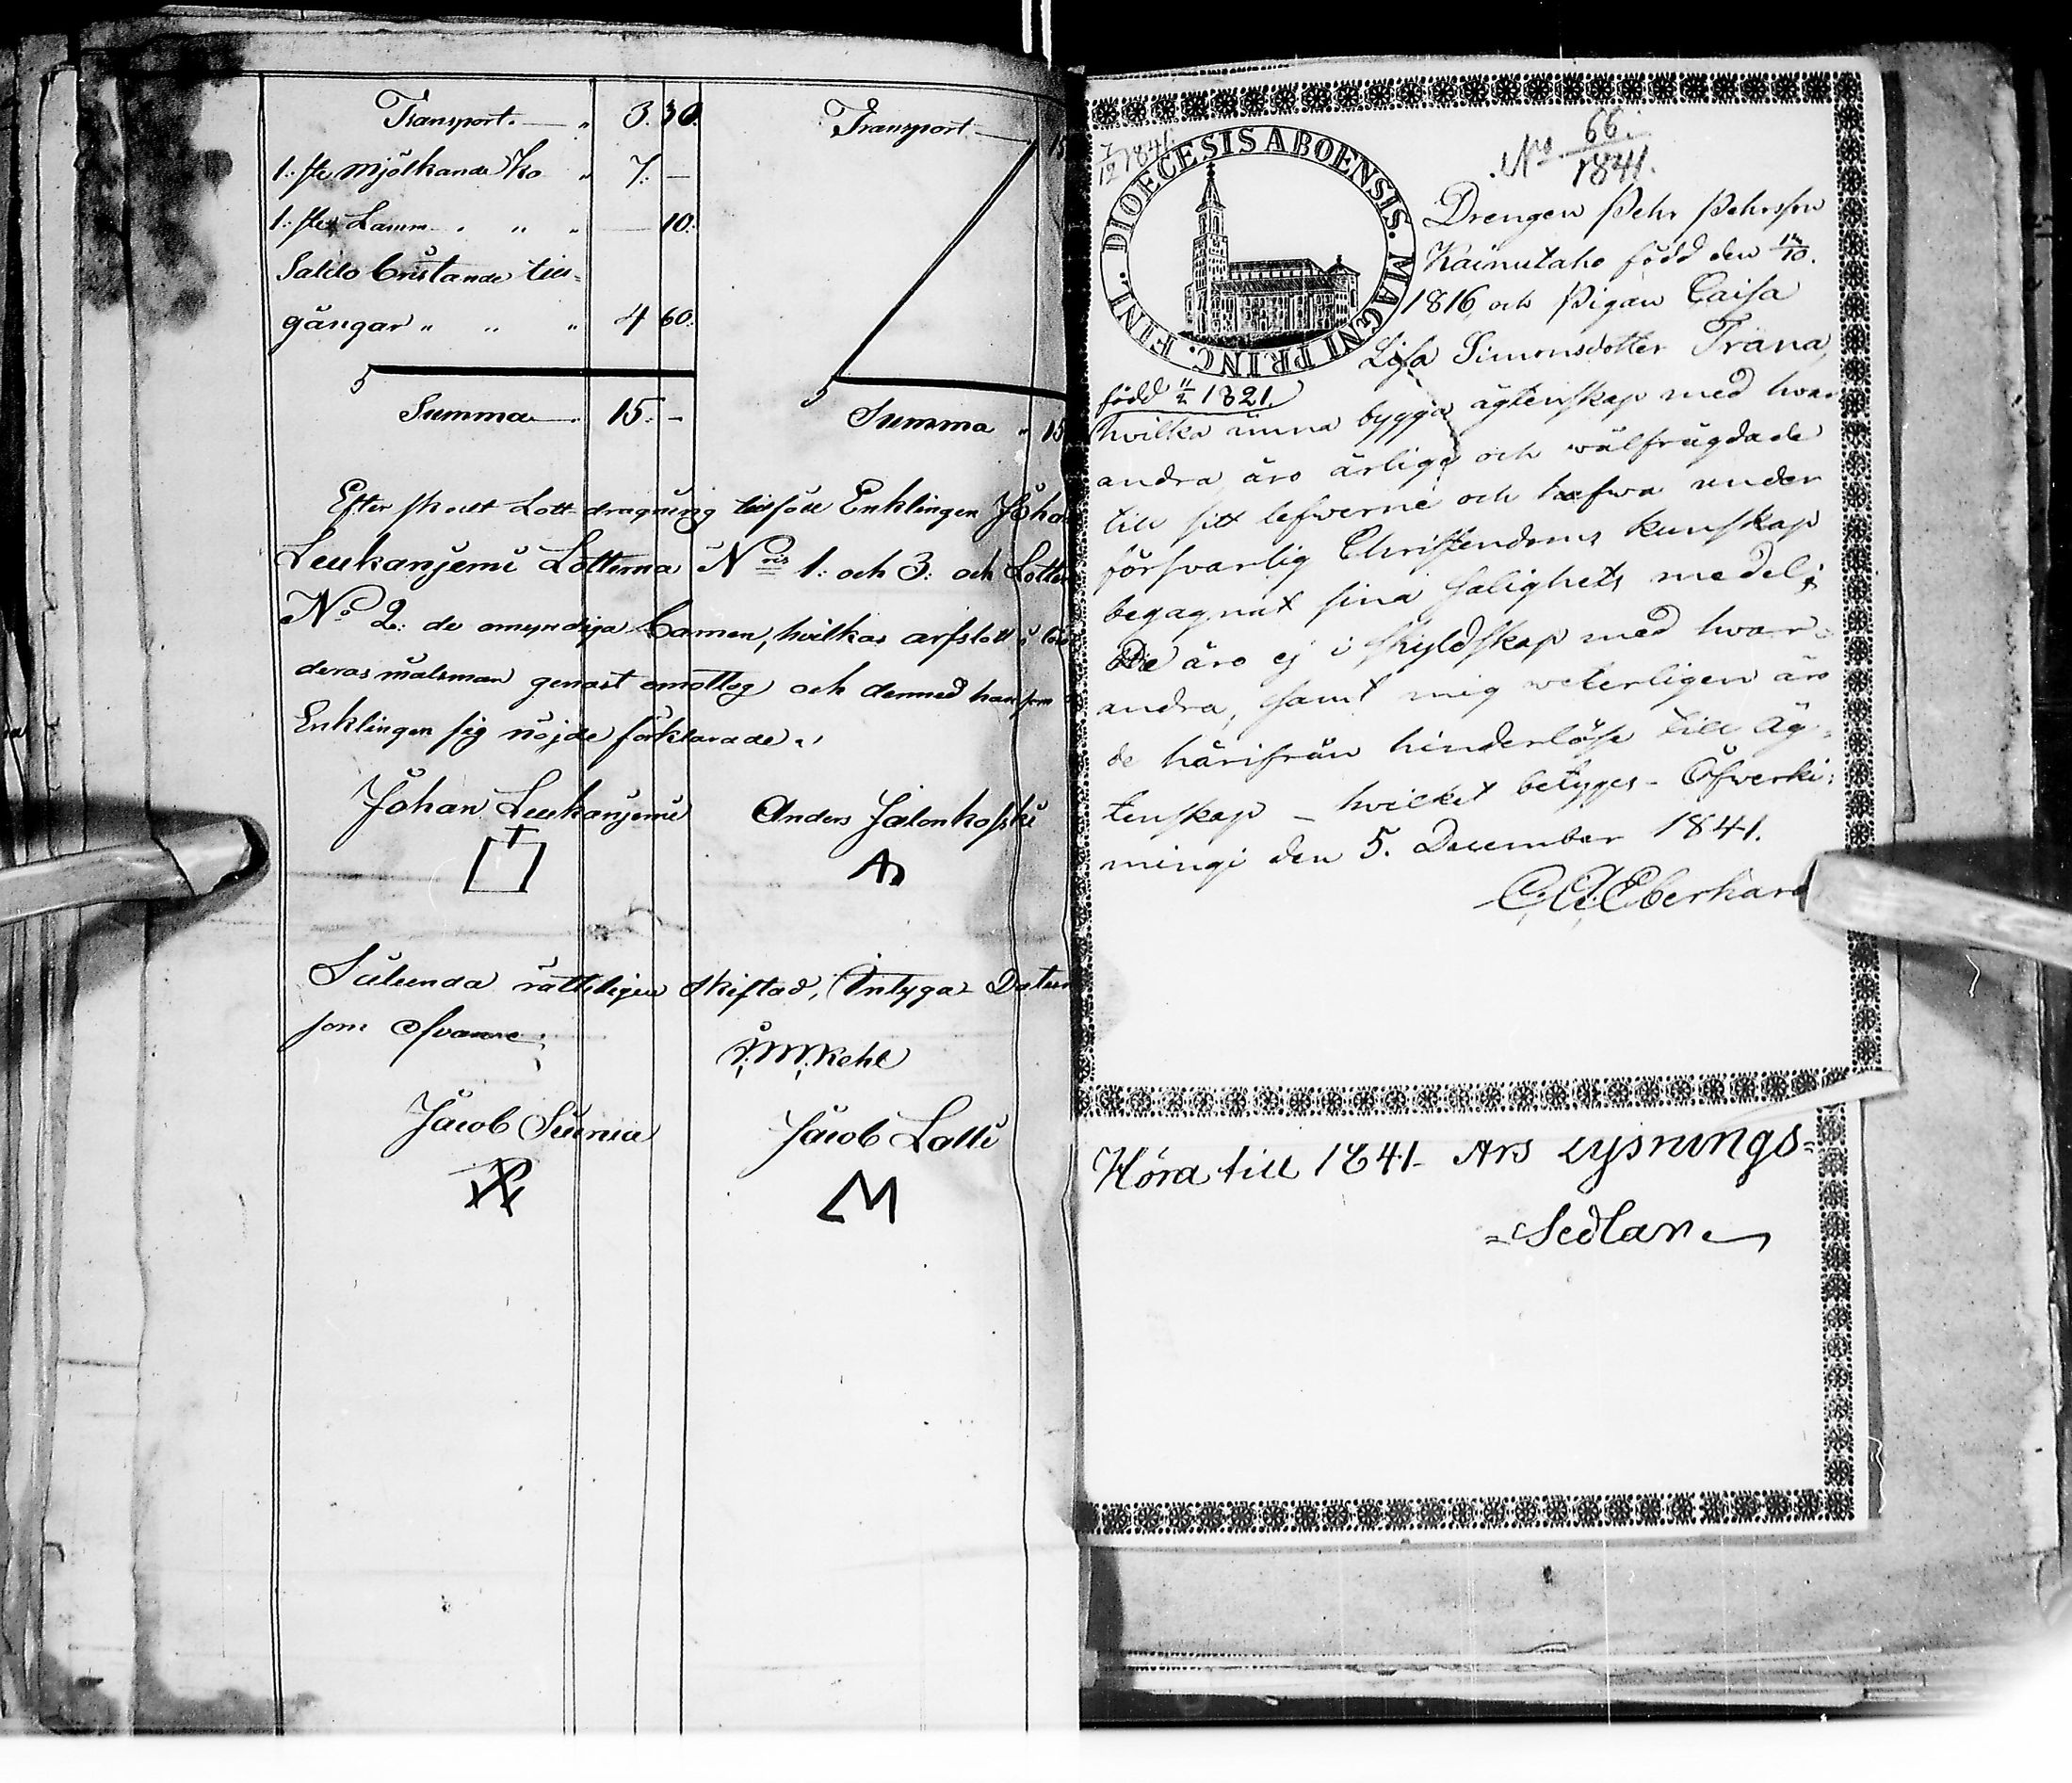 Transport. — " 3. 30.
1: st: mjölkande Ko " 7: —
1: st: Lamm " " — 10:
Saldo bristande till-
gångar " " " 4 60:
Summa 15: —
Transport 15
Summa " 15
Efter skedt Lott dragning tillföll Enklingen Joha
Leukanjemi Lotterna Nris 1: och 3: och Lotten
No 2: de omyndiga Barnen, hvilkas arfslott
deras målsman genast emottog och dermed han som
Enklingen sig nöjde förklarade.
Johan Leukanjemi Anders Jalonkoski
Sålunda rätteligen skiftad, Intyga Datum
som ofvan
Jacob Sunia Jacob Latti
7/12 1841.
No 66:
1841.
DIOECESIS ABOENSIS. MAGNI PRINC. FINL.
Drengen Pehr Pehrsson
Kainutaho född den
1816, och Pigan Caisa
Lisa Simonsdotter Träna,
född 1821.
hvilka ämna bygga ägtenskap med hvar
andra, äro ärlige och wälfrägdade
till sitt lefwerne och hafwa under
försvarlig Christendoms kunskap
begagnat sina salighets medel;
De äro ej i skyldskap med hvar-
andra, samt mig weterligen äro
de härifrån hinderlöse till äg-
tenskap – hvilket betyges – Öfwerki-
mingi den 5. December 1841.
C. A. Eberhard
Höra till 1841 Års Lysnings-
-Sedlar